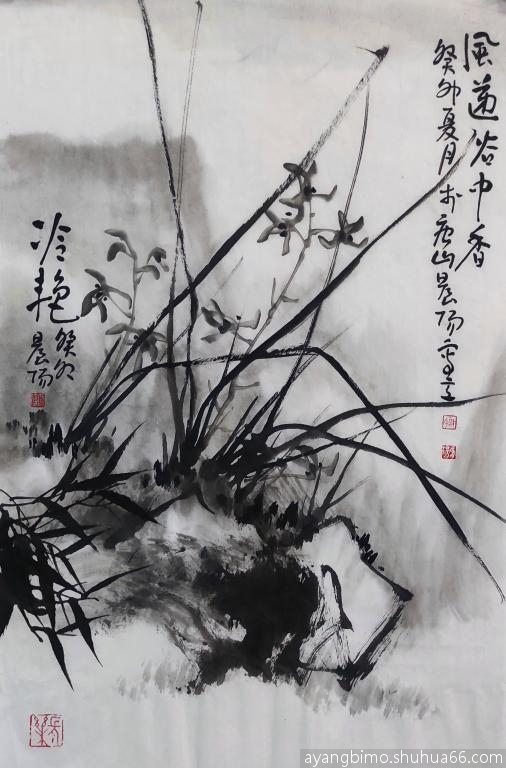 風過谷中香
癸卯夏月於唐山晨阳
冷艳
癸卯
晨阳
ayangbimo.shuhua66.com